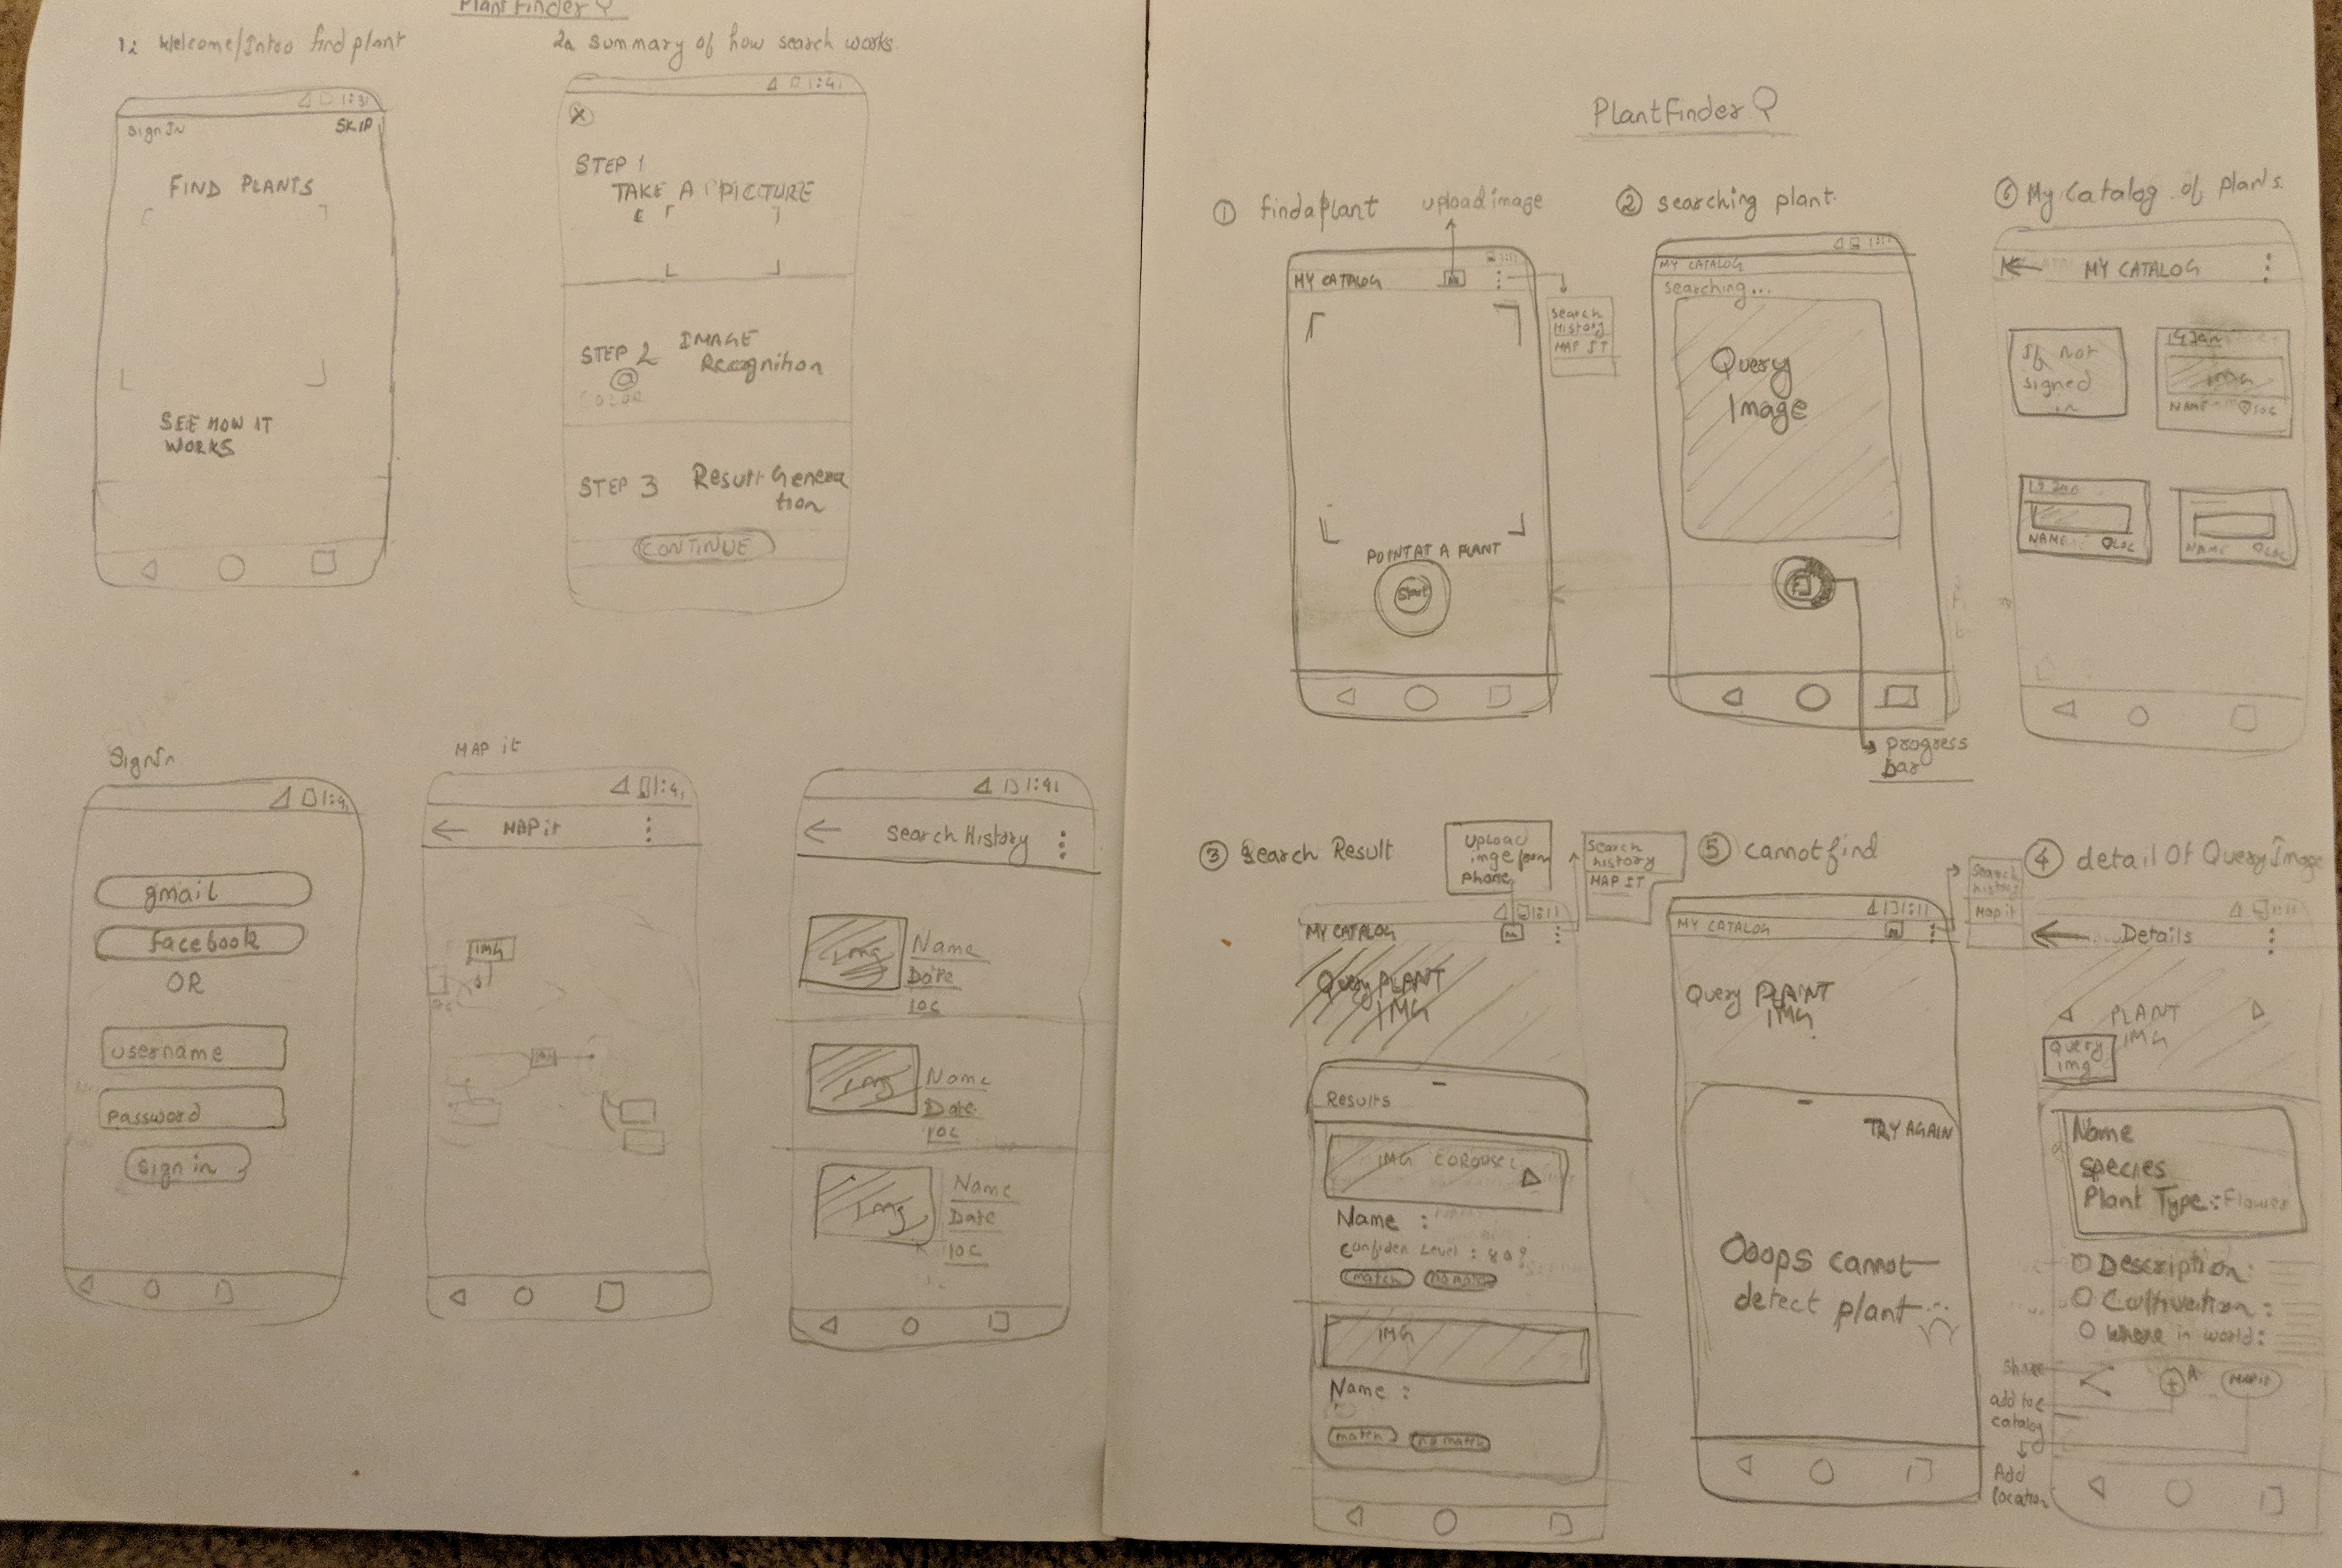 PlantFinder
1: Welcome/Intro find plant
1:31
Sign In
SKIP
FIND PLANTS
SEE HOW IT
WORKS
2a summary of how search works
1:41
X
STEP 1
TAKE A PICTURE
STEP 2
IMAGE
Recognition
COLOR
STEP 3
Result Genera
tion
CONTINUE
SignIn
1:41
gmail
facebook
OR
username
password
sign in
MAP it
1:41
MAP it
img
1:41
Search History
img
Name
Date
loc
img
Name
Date
loc
img
Name
Date
loc
PlantFinder
1 find a Plant
upload image
MY CATALOG
search
History
MAP IT
POINT AT A PLANT
Start
2 searching plant
MY CATALOG
searching...
Query
Image
progress
bar
6 My Catalog of plants
MY CATALOG
If not
signed
in
19 Jan
img
NAME
LOC
NAME
LOC
NAME
LOC
3 Search Result
Upload
imge from
phone
Search
history
MAP IT
1:11
MY CATALOG
Query PLANT
IMG
Results
IMG COROUSEL
Name :
Confiden Level : 80%
match
no match
IMG
Name :
match
no match
5 cannot find
Search
history
Map it
1:11
MY CATALOG
Query PLAINT
IMG
TRY AGAIN
Ooops cannot
detect plant
4 detail Of Query Image
Details
PLANT
IMG
Query
img
Name
species
Plant Type : Flower
Description:
Cultivation :
Where in world:
share
A
MAP it
add to
catalog
Add
location